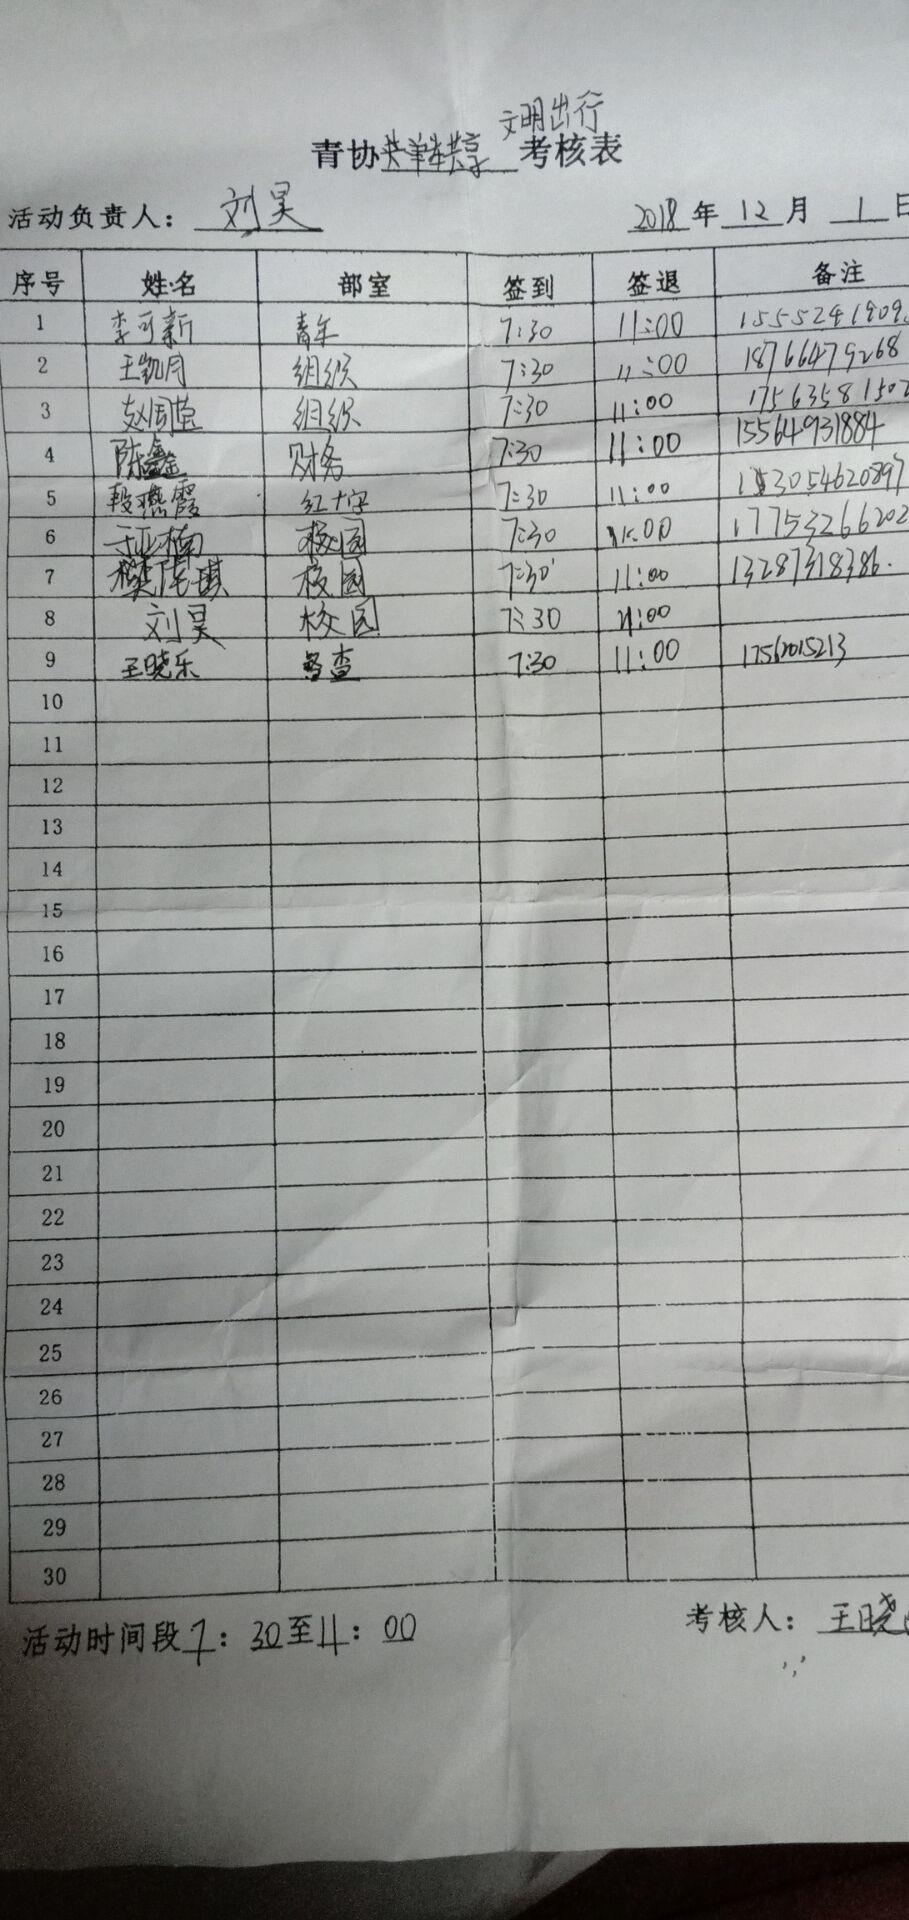 文明出行
青协 单车共享 考核表
活动负责人： 刘昊 2018 年 12 月 1 日
序号 姓名 部室 签到 签退 备注
1 李可新 青年 7:30 11:00
2 王凯月 组织 7:30 11:00 18766479268
3 赵周莹 组织 7:30 11:00 1756358150
4 陈鑫 财务 7:30 11:00 15564931884
5 段燕霞 红十字 7:30 11:00 3054620897
6 楠 校园 7:30 11:00 17753266202
7 樊 琪 校园 7:30 11:00 13287318386.
8 刘昊 校园 7:30 11:00
9 王晓乐 督查 7:30 11:00 17562015213
10
11
12
13
14
15
16
17
18
19
20
21
22
23
24
25
26
27
28
29
30
活动时间段 7：30至11：00 考核人： 王晓